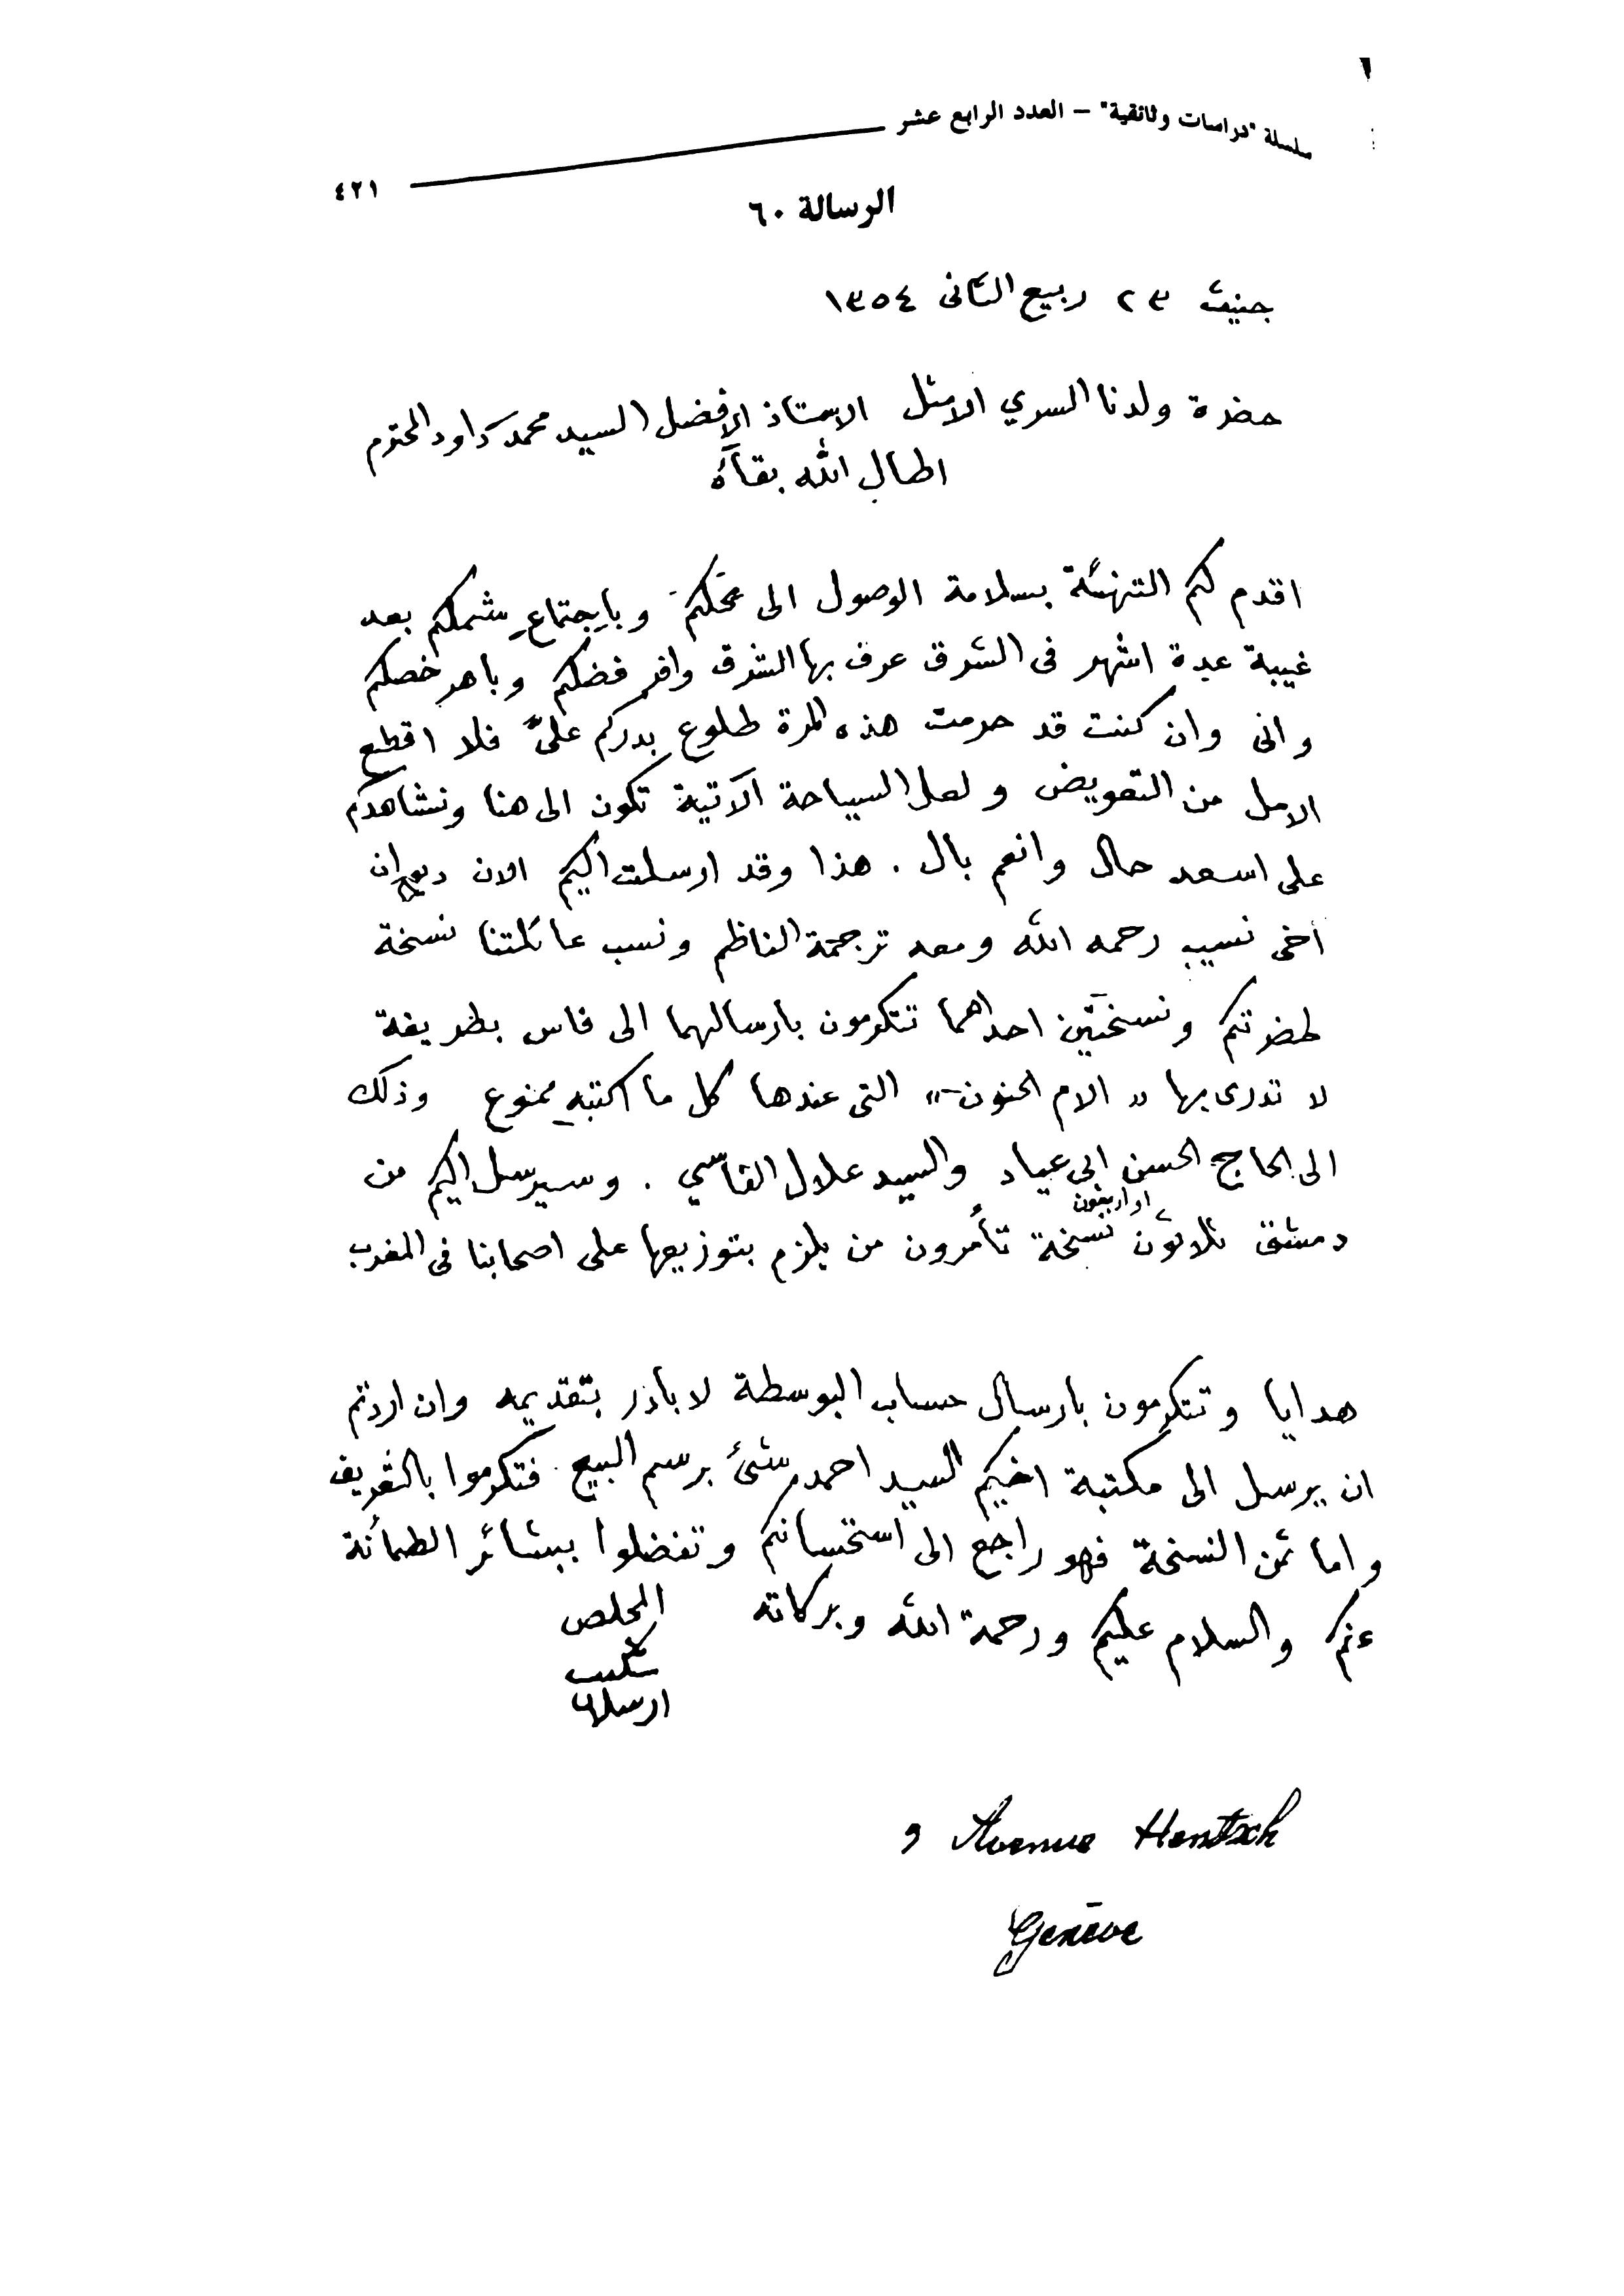 سلسلة "دراسات وثائقية" – العدد الرابع عشر
٤٢١
الرسالة ٦٠
جنيف ٢٣ ربيع الثانى ١٣٥٤
حضرة ولدنا السري الامثل الاستاذ الافضل السيد محمد داود المحترم
اطال الله بقآءَه
اقدم لكم التهنئة بسلامة الوصول الى محلكم وباجتماع شملكم بعد
غيبة عدة اشهر فى الشرق عرف بها الشرق وافر فضلكم وباهر خصلكم
وانى وان كنت قد حرمت هذه المرة طلوع بدركم علىَّ فلا اقطع
الامل من التعويض ولعل السياحة الآتية تكون الى هنا ونشاهدكم
على اسعد حال وانعم بال . هذا وقد ارسلت اليكم الان ديوان
أخى نسيب رحمه الله ومعه ترجمة الناظم ونسب عائلتنا نسخة
لحضرتكم ونسختين احداهما تتكرمون بارسالهما الى فاس بطريقة
لا تدرى بها « الام الحنون » التى عندها كل ما اكتبه ممنوع وذلك
الى الحاج الحسن ابى عياد والسيد علال الفاسي . وسيرسل اليكم من
او اربعون
دمشق ثلاثون نسخة تأمرون من يلزم بتوزيعها على اصحابنا فى المغرب
هدايا وتتكرمون بارسال حساب البوسطة لابادر بتقديمه وان اردتم
ان يرسل الى مكتبة اخيكم السيد احمد شئ برسم البيع فتكرموا بالتعريف
واما ثمن النسخة فهو راجع الى استحسانكم وتفضلوا ببشائر الطمأنة
عنكم والسلام عليكم ورحمة الله وبركاته المخلص
شكيب
ارسلان
9 Avenue Hentsch
Genève